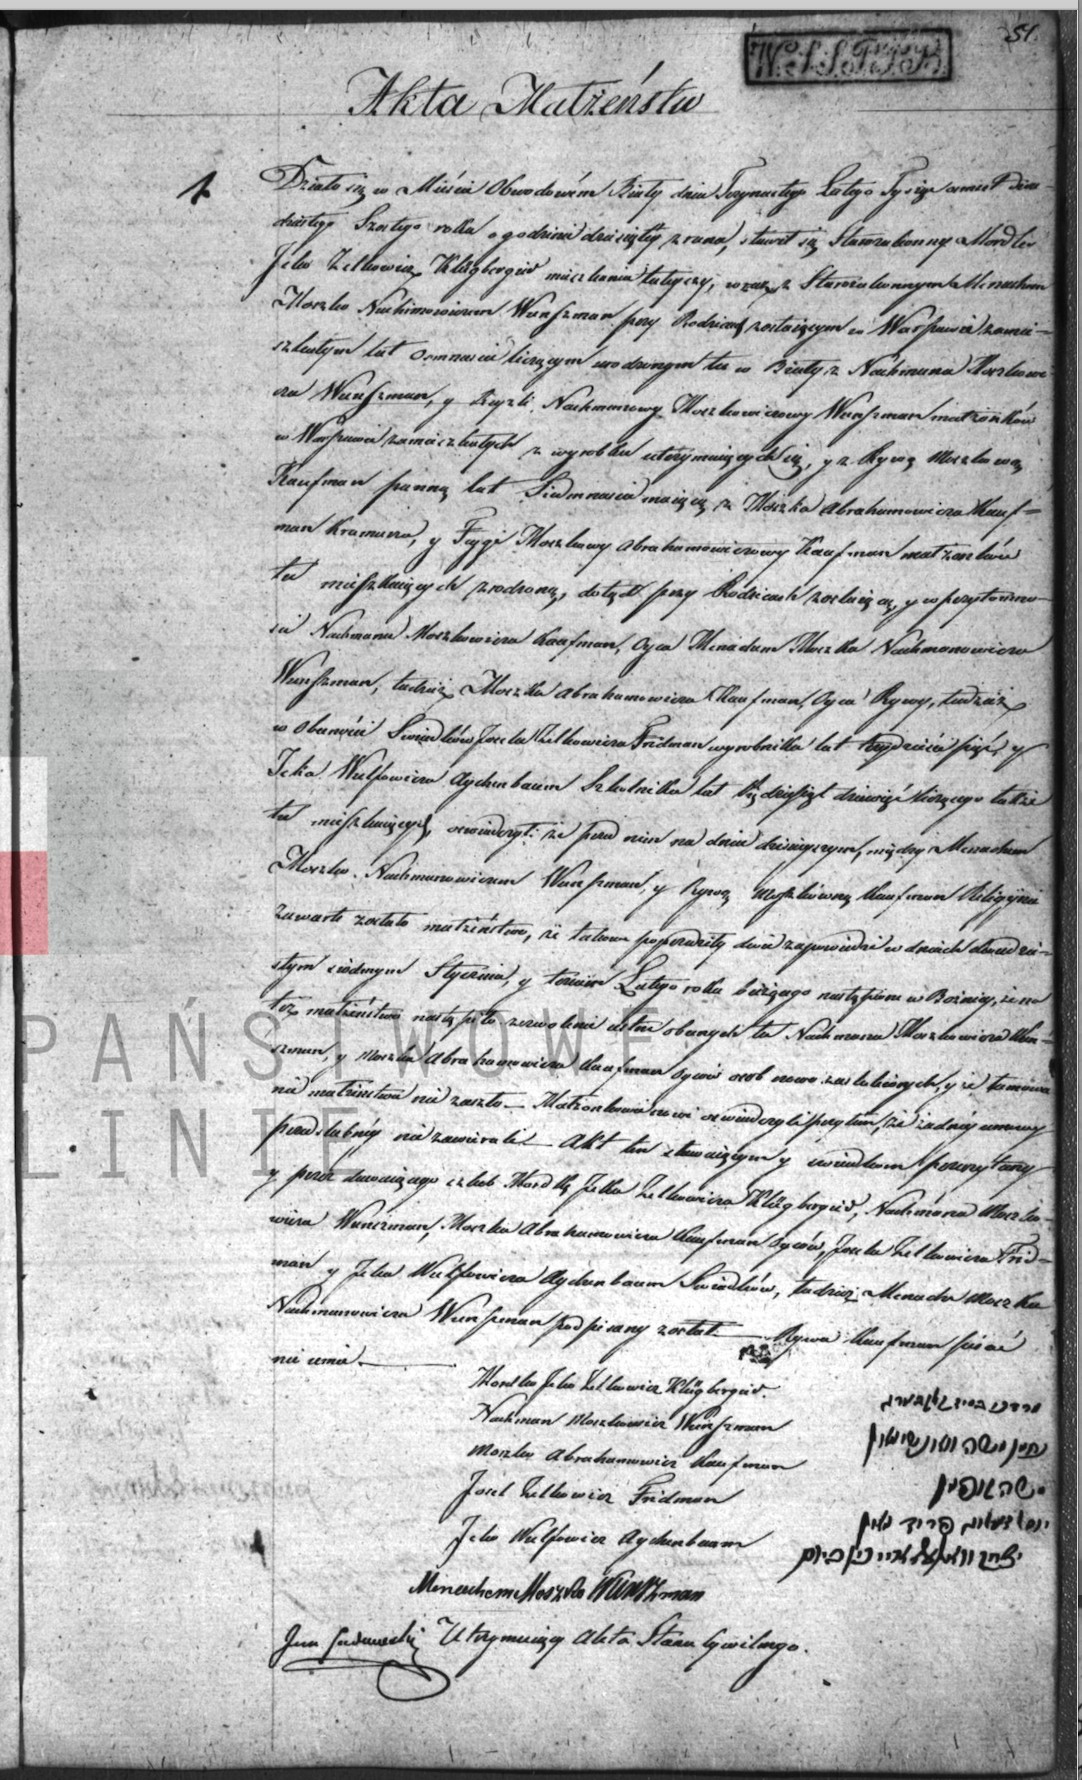 51.
W. S. S. T. P. P.
Akta Małżeństw
1. Działo się w Mieście Obwodowém Biały dnia Trzynastego Lutego Tysiąc osmset dwu-
dziestego Szostego roku o godzinie dziesiątéy z rana, stawił się Starozakonny Mordko
Jcko Zelkowicz Klügbergiéś mieszkania tuteyszy, wraz z Starozakonnym Menachem
Moszko Nachimowiczem Wunszman przy Rodzicach zostaiącym w Warszawie zamie-
szkałym lat osmnaście liczącym urodzonym tu w Biały z Nachmana Moszkowi-
cza Wunszman, y Ruzli Nachmanowy Moszkowiczowy Wunszman małżonków
w Warszawie zamieszkałych z wyrobku utrzymuiących się, y z Rywą Moszkową
Kaufman panną lat Siedmnaście maiącą z Moszka Abrahamowicza Kauf-
man Kramarza, y Feygi Moszkowy Abrahamowiczowy Kaufman małżonków
tu mieszkaiących zrodzoną, dotąd przy Rodzicach zostaiącą, y w przytomno-
ści Nachmana Moszkowicza Kaufman, Oyca Menachem Moszka Nachmanowicza
Wunszman, tudzież Moszka Abrahamowicza Kaufman, Oyca Rywy, tudzież
w obecności Swiadków Josela Zelkowicza Fridman wyrobnika lat trzydzieści pięć y
Jcka Wulfowicza Aychenbaum Szkolnika lat dziewięć liczącego także
tu mieszkaiących, oswiadczyli: że przed nim na dniu dzisieyszym, między Menachem
Moszko Nachmanowiczem Wunszman, y Rywą Moszkówną Kaufman Religiyne
zawarte zostało małżeństwo, że takowe poprzedziły dwie zapowiedzi w dniach dwudzie-
stym siódmym Stycznia, y Lutego roku bieżącego nastąpione w Bożnicy, że na
toż małżeństwo nastąpiło zezwolenie ustne obecnych tu Nachmana Moszkowicza Wun-
szman, y Moszka Abrahamowicza Kaufman Oyców osób nowo zaslubionych, y że tamowa-
nie małżeństwa nie zaszło. — Małżonkowie nowi oswiadczyli przytem, że żadnéy umowy
przedslubnéy nie zawierali — Akt ten stawaiącym y swiadkom przeczytany
y przez daiącego szlub Mordkę Jcka Zelkowicza Klügbergiéś, Nachmana Moszko-
wicza Wunszman, Moszka Abrahamowicza Kaufman Oyców, Joska Zelkowicza Frid-
man y Jcka Wulfowicza Aychenbaum Swiadków, tudzież Menache Moszka
Nachmanowicza Wunszman podpisany został. — Rywa Kaufman pisać
nie umie. —
Mordko Jcko Zelkowicz Klügbergiéś.
Nachman Moszkowicz Wunszman
Moszko Abrahamowicz Kaufman
Josel Zelkowicz Fridman
Jcko Wulfowicz Aychenbaum
Menachem Moszko Wunszman
Utrzymuiący Akta Stanu Cywilnego.
PAŃSTWOWE
LINIE